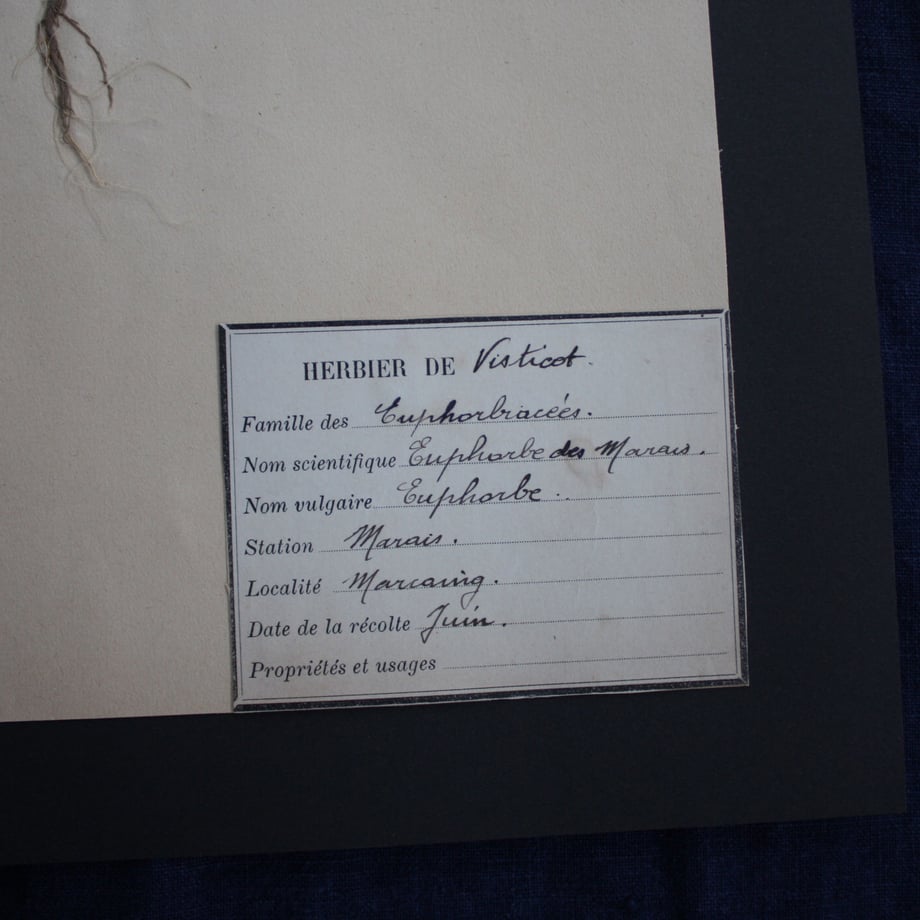 HERBIER DE Visticot.
Famille des Euphorbiacées.
Nom scientifique Euphorbe des Marais.
Nom vulgaire Euphorbe.
Station Marais.
Localité Marcaing.
Date de la récolte Juin.
Propriétés et usages